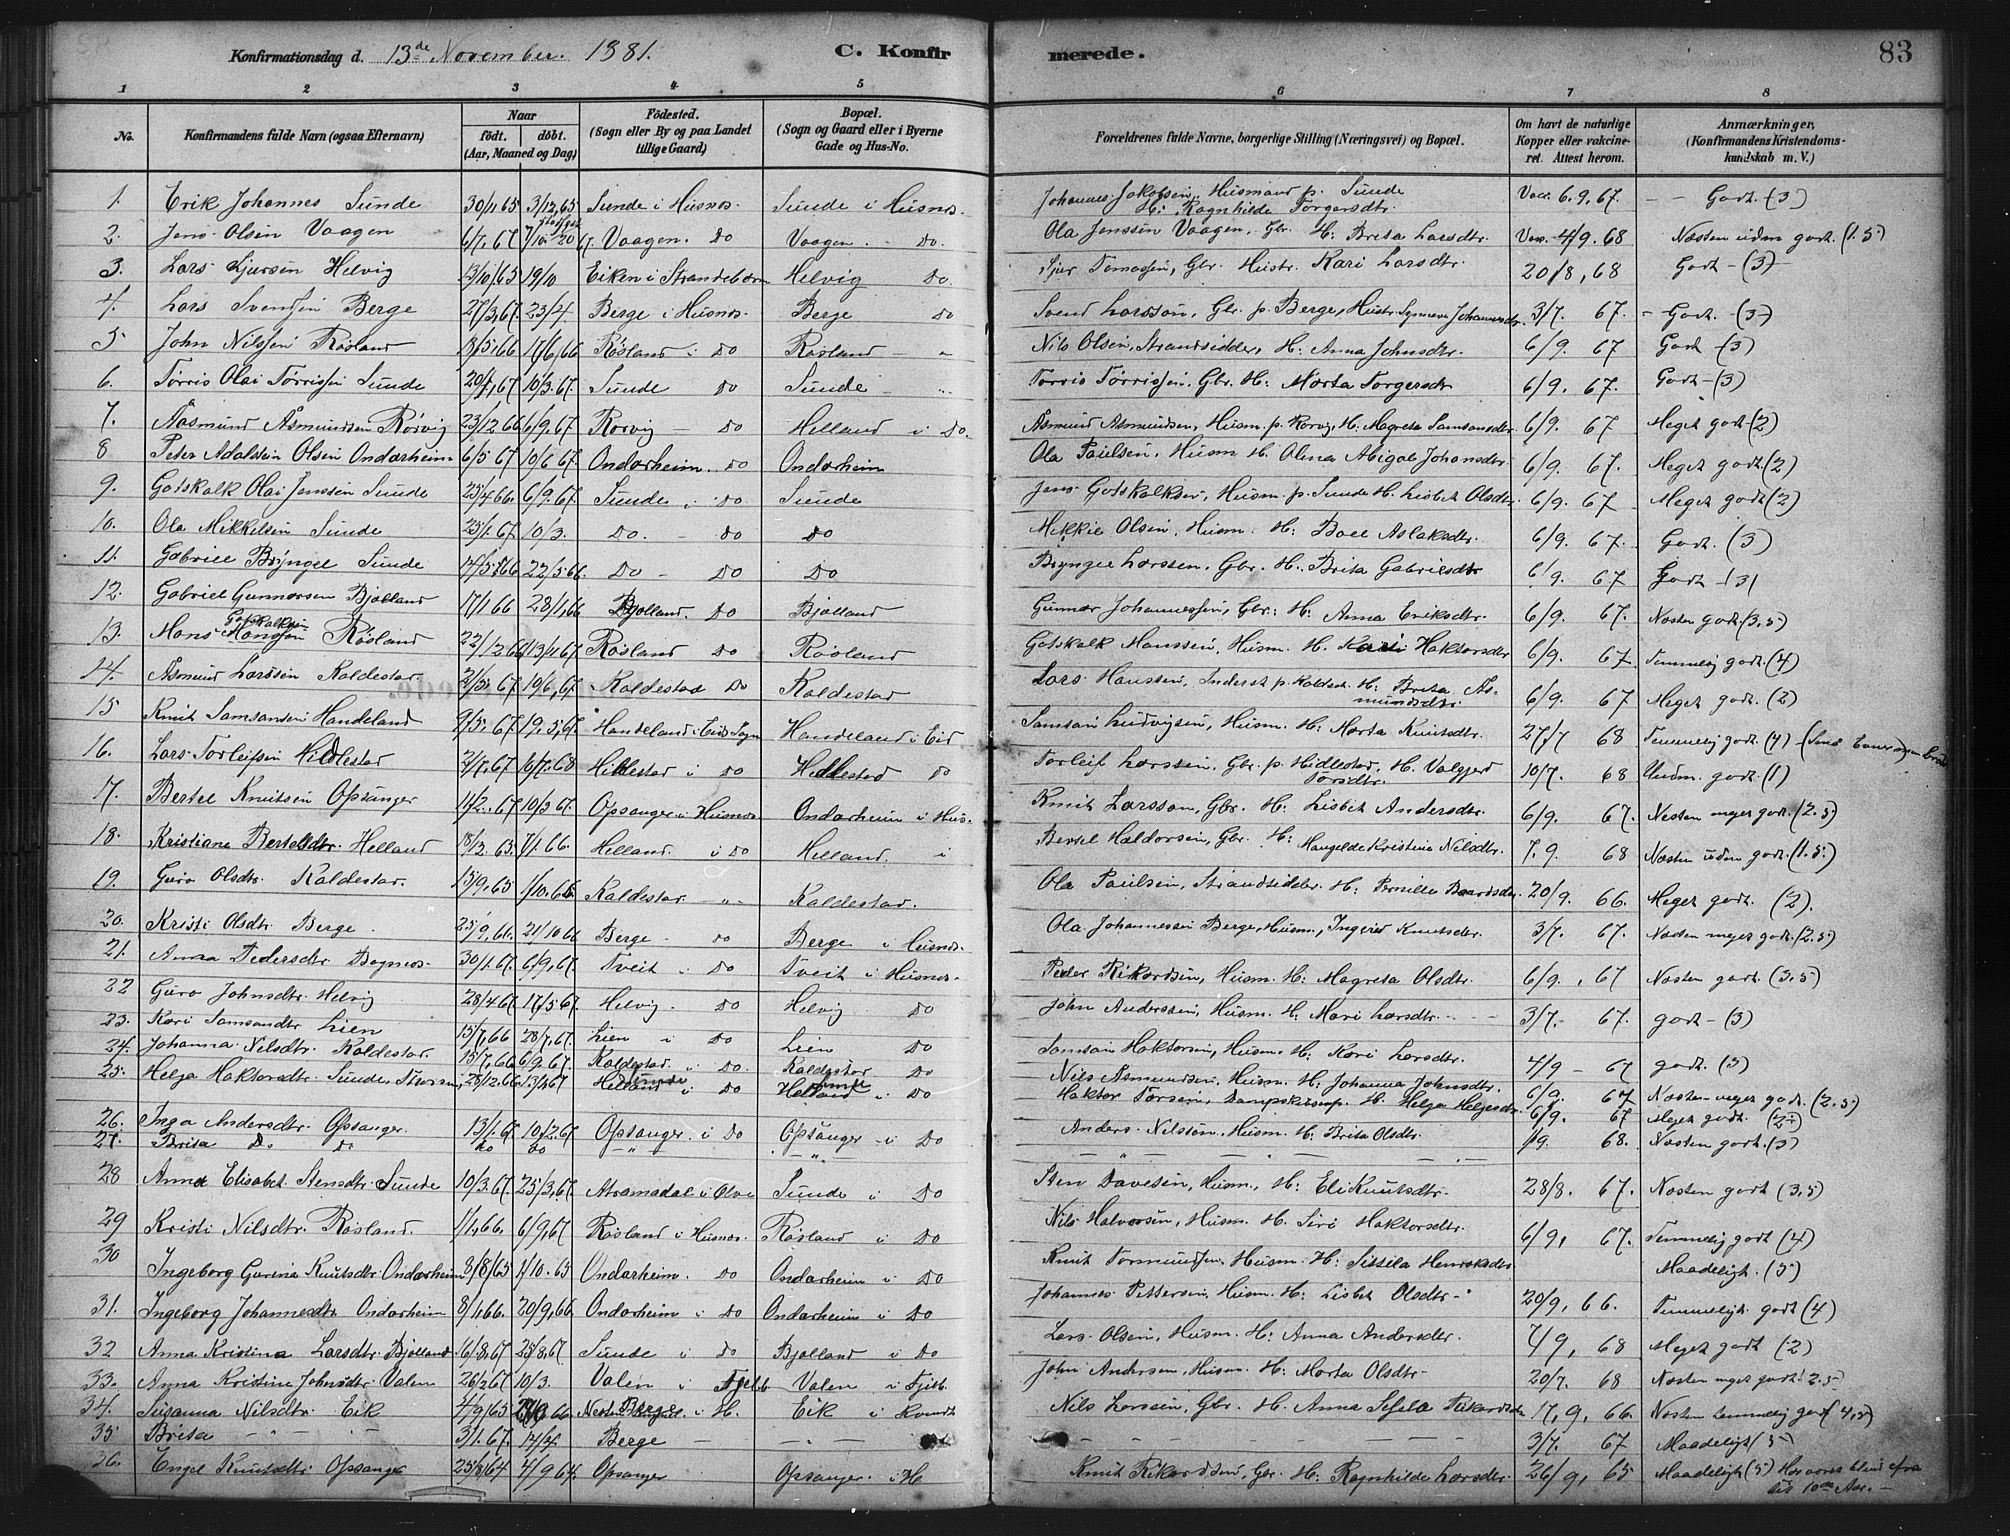 Konfirmationsdag d. 13de November. 1881. C. Konfir merede. 83
1 2 3 4 5 6 7 8
No. Konfirmandens fulde Navn (ogsaa Efternavn) Naar födt. döbt. (Aar, Maaned og Dag) Födested. (Sogn eller By og paa Landet tillige Gaard) Bopæl. (Sogn og Gaard eller i Byerne Gade og Hus-No. Forældrenes fulde Navne, borgerlige Stilling (Næringsvei) og Bopæl. Om havt de naturlige Kopper eller vakcineret. Attest herom. Anmærkninger, (Konfirmandens Kristendomskundskab m. V.)
1. Erik Johannes Sunde 3/12,65 Sunde i Husnes. Sunde i Husnes. Johannes Jakobsen, Husmand p. Sunde H: Ragnhilde Torgersdtr. Vacc. 6.9.67. Godt. (3)
2. Jens Olsen Vaagen 6/7,67 Vaagen. Do Vaagen. Do. Ola Jenssen Vaagen, Gbr. H: Brita Larsdtr. 4/9. 68 Næsten uden godt. (1.5)
3. Lars Sjursen Helvig 13/10,65 19/10 Eiken i Strandebarm Helvig Do. Sjur Tomassen, Gbr. Hustr. Kari Larsdtr. 20/8, 68 Godt - (3)
4. Lars Svendsen Berge 27/3,67. 23/4 Berge i Husnes. Berge Do Svend Larsson, Gbr. p. Berge, Hustr. Synneva Johannesdtr. 3/7. 67. Godt. (3)
5 John Nilssen Røsland 18/5,66 17/6,66 Røsland i Do Røsland Nils Olsen, Strandsidder, H: Anna Johnsdtr. 6/9. 67 Godt - (3)
6. Torris Olai Torrissen Sunde 20/1,67 10/3.67. Sunde Do Sunde Torris Torrissen. Gbr. H: Marta Torgersdtr 6/9. 67. Godt - (3)
7. Aasmund Asmundsen Rørvig 23/12 66 6/9,67 Rørvig Do Helland i Do. Asmund Asmundsen, Husm. p. Rørvig, H. Magreta Samsonsdtr 6/9. 67 Meget godt (2)
8 Peter Adalstein Olsen Ondarheim 6/5 67 10/6 67. Ondarheim. Do Ondarheim Ola Paulsen, Husm H. Olina Abigal Johansdtr 6/9. 67. Meget godt. (2)
9. Gotskalk Olai Jenssen Sunde 25/4 66. 6/9.67. Sunde i Do Sunde Jens Gotskalksen, Husm. p. Sunde H. Lisbet Olsdtr. 6/9. 67 Meget godt (2)
10. Ola Mikkelsen Sunde 25/1.67. 10/3. Do. Do Do Mikkel Olsen, Husm. H: Boel Aslaksdtr. 6/9. 67. Godt. (3)
11. Gabriel Bryngel Sunde 14/5 66 22/5 66. Do Do Do Brynge Larssen, Gbr. H. Brita Gabrielsdtr 6/9. 67 Godt (3)
12. Gabriel Gunnarsen Bjølland 17/1 66 28/1,66 Bjølland. Do Bjølland Gunnar Johannessen, Gbr: H: Anna Eriksdtr. 6/9. 67. Næsten godt. (3,5)
13. Mons Gotskalksen Monssen Røsland 22/12 66 13/4 67. Røsland Do Røsland Gotskalk Monssen, Husm. H. Kari Haktorsdtr 6/9. 67 Temmelig godt. (4)
14. Asmund Larssen Kaldestad 2/5, 67 10/6,67 Kaldestad Do Kaldestad Lars Hanssen, Inderst p. Kaldest. H: Brita Asmundsdtr. 6/9. 67 Meget godt. (2)
15 Knut Samsonsen Handeland 9/5,67. 19,5,67. Handeland i Eids Sogn Handeland i Eid Samson Ludvigsen, Husm. H: Marta Knutsdtr. 27/7 68 Temmelig godt. (4)
16. Lars Torleifsen Hidlestad 2/7,67 6/7.68 Hidlestad i Do Hidlestad Do Torleif Larssen, Gbr. p. Hidlestad, H. Valgjerd Torsdtr. 10/7. 68 Udm. godt. (1)
17. Bertel Knutsen Opsanger 11/2.67. 10/3 67. Opsanger i Husnes Ondarheim i Hus. Knut Larsson, Gbr. H: Lisbet Andersdtr. 6/9. 67. Næsten meget godt. (2.5)
18. Kristiane Berteldtr. Helland 18/12. 65. 7/1.66. Helland. i Do Helland. i Bertel Haldorsen, Gbr. H: Mangelde Kristine Nilsdtr. 7.9. 68 Næsten uden godt. (1.5.)
19. Guro Olsdtr. Kaldestad. 15/9,65 1/10,65 Kaldestad. Kaldestad. Ola Paulsen, Strandsidder. H: Pernille Baardsdtr. 20/9. 66. Meget godt. (2).
20. Kristi Olsdtr Berge. 25/9,66. 21/10 66 Berge Do Berge i Husnes. Ola Johannessen Berge, Husm, Ingerid Knutsdtr. 3/7. 67. Næsten meget godt. (2.5)
21. Anna Pedersdtr Bognes. 30/1.67. 6/9,67. Tveit i Do Tveit i Husnes Peder Rikardsen, Husm. H: Magreta Olsdtr. 6/9., 67 Næsten godt. (3,5)
22 Guro Johnsdtr. Helvig 28/4 67. 17/5 67. Helvig. Do Helvig Do John Anderssen, Husm. H: Mari Larsdtr. 3/7. 67. godt - (3)
23. Kari Samsondtr Lien 15/7,66 28/7,67. Lien i Do Lien Do Samson Haktorsen, Husm. H: Kari Larsdtr. 4/9 - 67 godt. (3)
24. Johanna Nilsdtr. Kaldestad. 15/7,66 6/9 67. Kaldestad. i Do. Kaldestad Do Nils Asmundsen, Husm. H: Johanna Johnsdtr. 6/9. 67 Næsten meget godt. (2.5)
25. Helga Haktorsdtr. Sunde, 28/12,66 13/4 67 Sunde i Do Sunde i Do Haktor Torsen, Dampskibsexp. H. Helga Helgesdtr 6/9. 67 Meget godt. (2)
26. Inga Andersdtr. Opsanger. 13/1.67. 10/2.67 Opsanger. i Do Opsanger i Do Anders Nilsson, Husm. H: Brita Olsdtr. 1/9. 68. Næsten godt. (3)
27. Brita Do. Do. Do Do
28 Anna Elisabet Stensdtr Sunde 10/3.67. 25/3,67. i Ølve Sunde i Do Sten Davesen, Husm., H: Eli Knutsdtr. 28/8. 67. Næsten godt (3,5)
29 Kristi Nilsdtr. Røsland. 1/1,66. 6/9,67 Røsland i Husnes. Røsland i Do Nils Halvorsen, Husm. H. Siri Haktorsdtr. 6/9, 67. Temmelig godt (4)
30 Ingeborg Gurina Knutsdtr. Ondarheim 8/8/65 1/10.65 Ondarheim. Do Ondarheim i Do Knut Tormundsen, Husm. H: Sissela Henriksdtr Maadeligt. (5)
31. Ingeborg Johannesdtr. Ondarheim 8/1,66. 20/9,66 Ondarheim i Do Ondarheim i Do Johannes Pettersen, Husm. H: Lisbet Olsdtr 20/9, 66. Temmeligt godt (4)
32 Anna Kristina Larsdtr. Bjølland 16/8,67 25/8,67 Sunde i Do Bjølland i Do Lars Olsen, Husm. H: Anna Andersdtr. 7/9, 68 Meget godt (2)
33. Anna Kristine Johnsdtr. Valen 26/2 67 10/3. Valen i Fjelb Valen i Fjelb. John Andersen, Husm. H. Marta Olsdtr 20/7. 68 Næsten meget godt (2.5)
34. Susanna Nilsdtr. Eik 4/9/65 Berge i H. Eik i Kvindh Nils Larssen, Gbr. H. Anna Sesela Rikardsdtr 17,9, 66. Næsten temmelig godt (4,5)
35 Brita 3/1.67. Berge 3/7. 67 Maadeligt (5)
36. Engel Knutsdtr Opsanger 25/8/64 4/9 64. Opsanger Opsanger i H Knut Rikardsen, Gbr. H: Ragnhilde Larsdtr. 26/9, 65 Maadeligt (5) Har været blind efra sit 10de Aar.